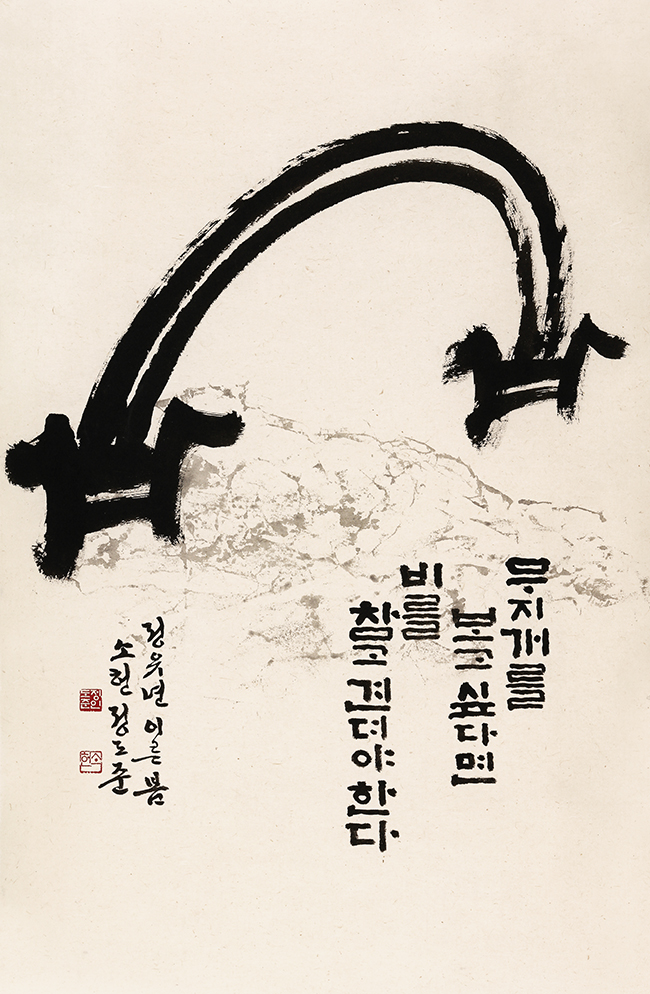 무지개를
보고 싶다면
비를
참고 견뎌야 한다
정유년 이른 봄
소헌 정도준